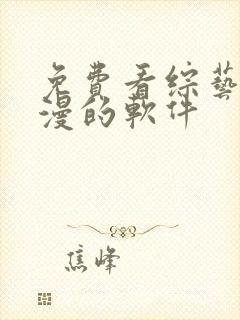 免費看綜藝
漫的軟件
焦峰